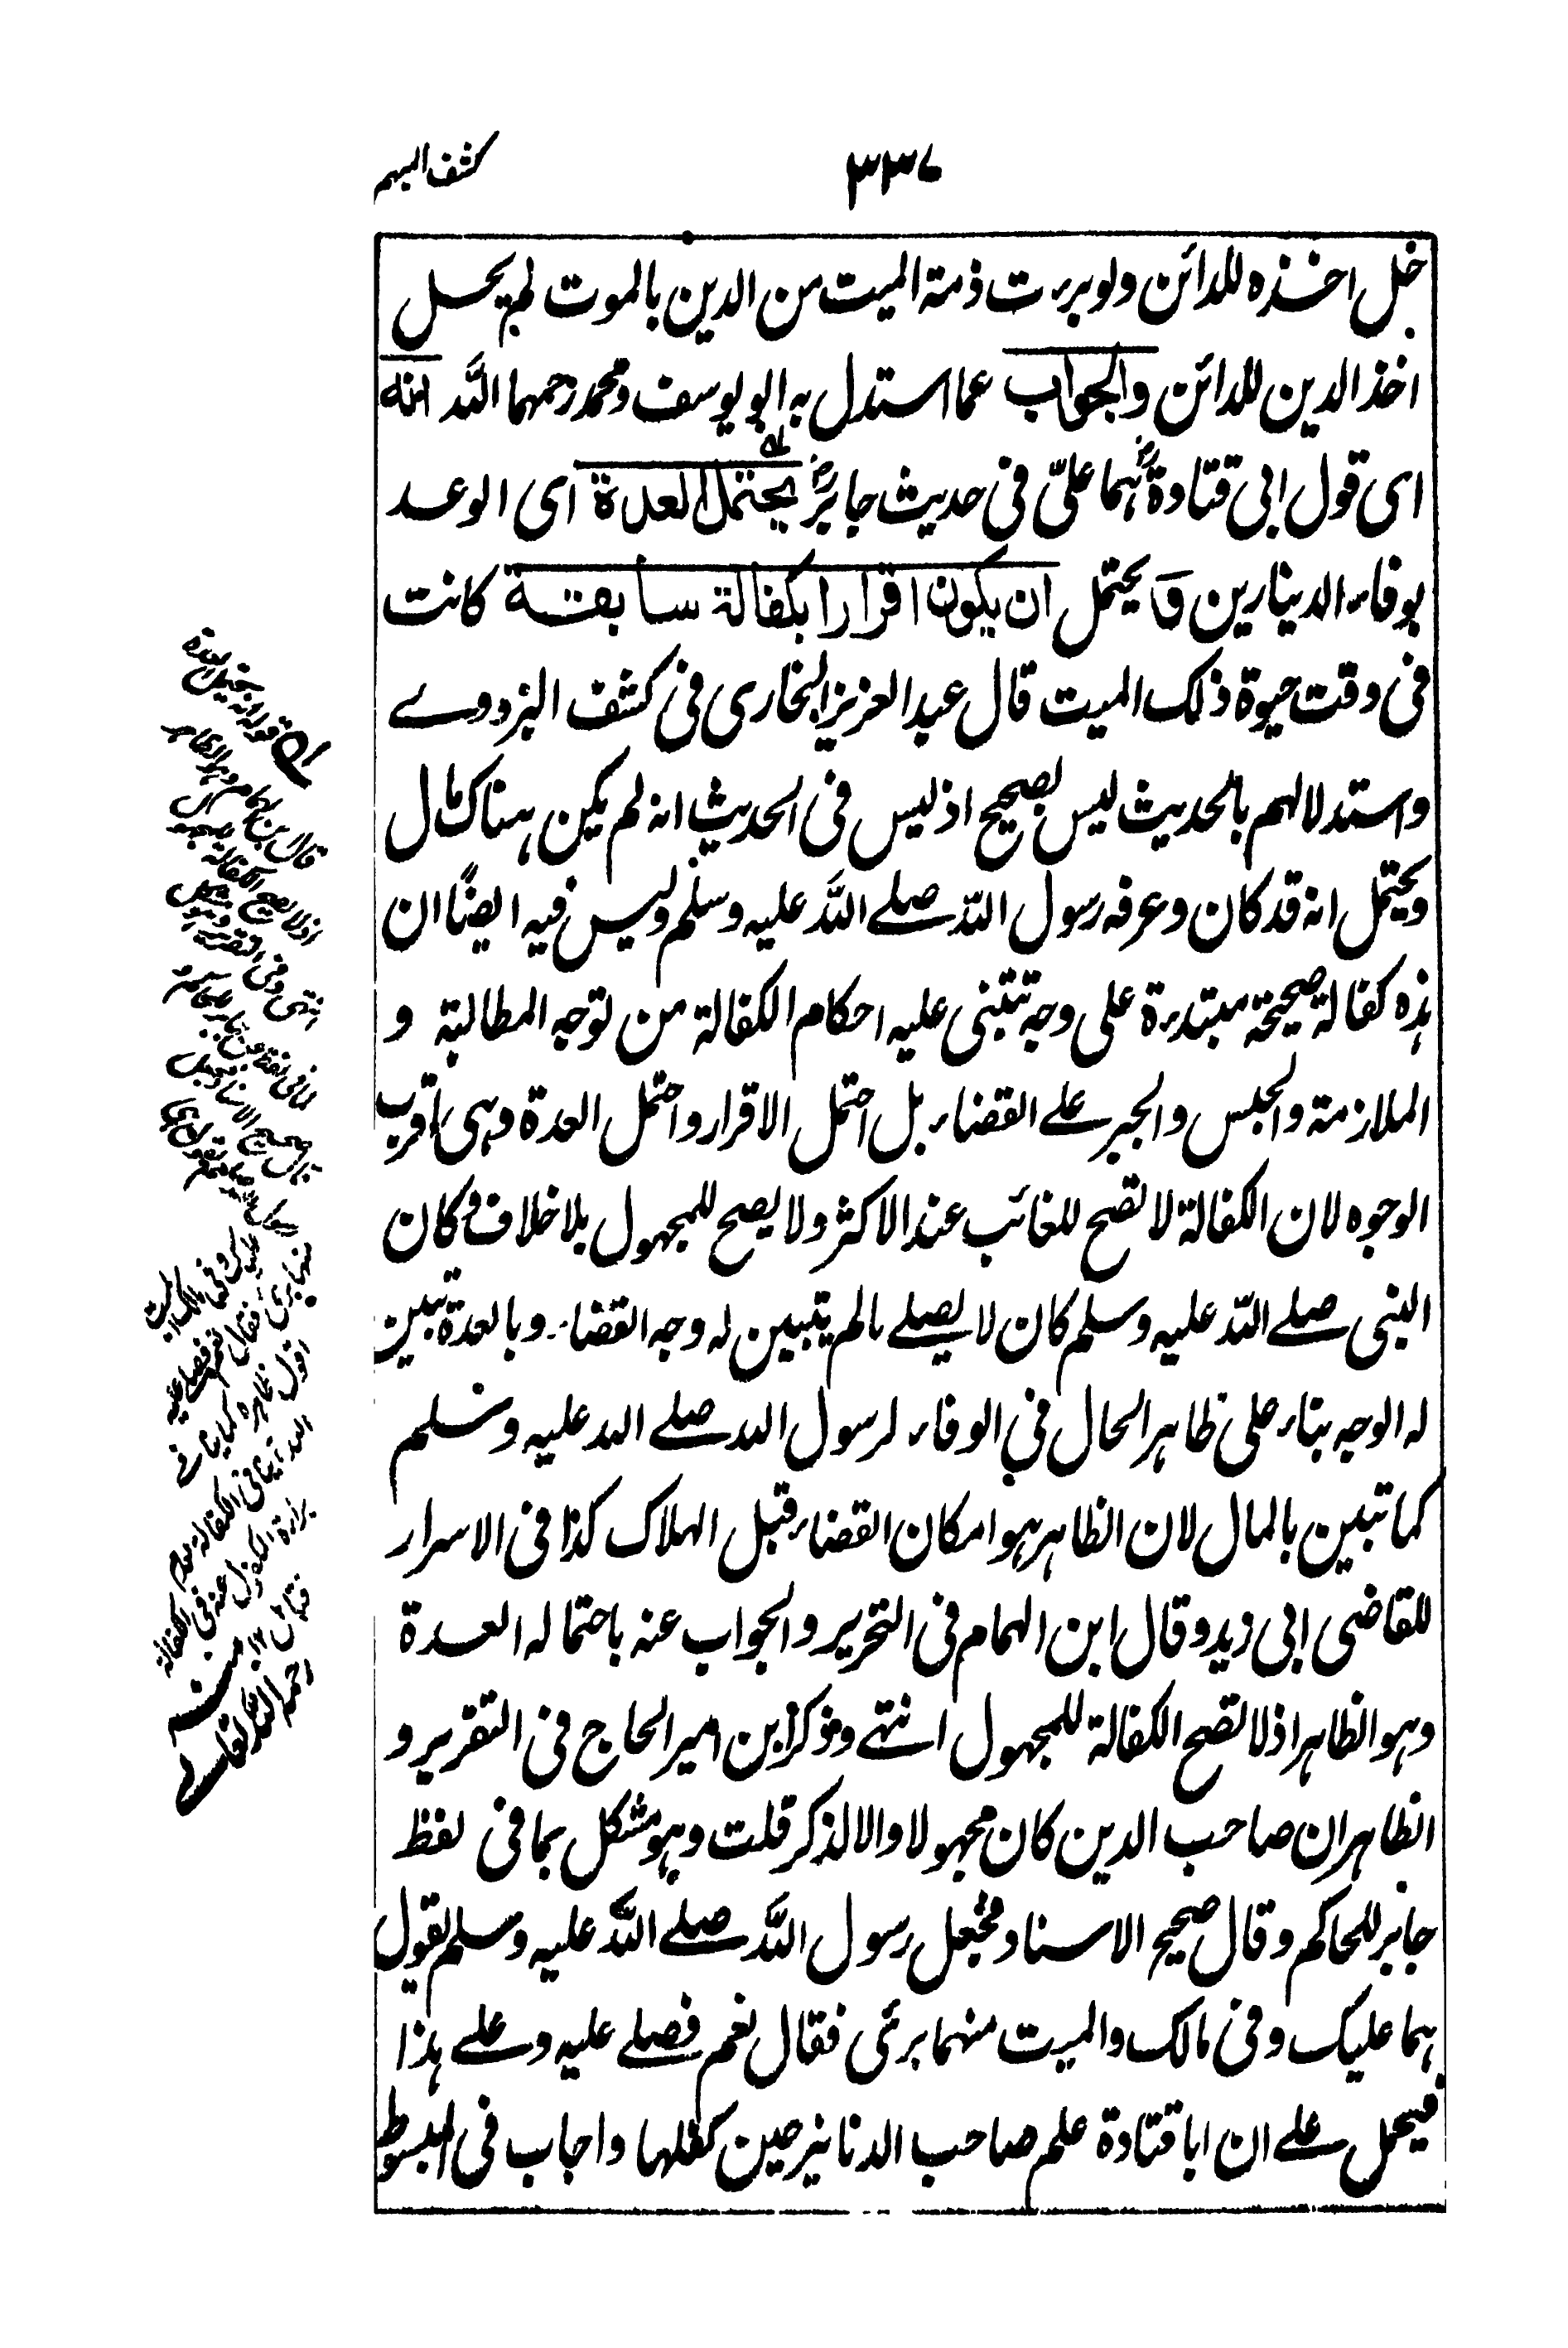 ٣٣٧
كشف المبهم
حل اخذه للدائن ولو برءت ذمة الميت من الدين بالموت لم يحل
اخذ الدين للدائن والجواب عما استدل به ابو يوسف ومحمد رحمهما الله انه
اى قول ابى قتادة رض هما علىّ فى حديث جابر رض يحتمل العدة اى الوعد
بوفاء الدينارين و يحتمل ان يكون اقرارا بكفالة سابقة كانت
فى وقت حيوة ذلك الميت قال عبد العزيز البخارى فى كشف البزدوے
واستدلالهم بالحديث ليس بصحيح اذ ليس فى الحديث انه لم يكن هناك مال
ويحتمل انه قد كان وعرفه رسول الله صلے الله عليه وسلم وليس فيه ايضًا ان
هذه كفالة صحيحة مبتدءة على وجه تبتنى عليه احكام الكفالة من توجه المطالبة و
الملازمة والحبس والجبر علے القضاء بل احتمل الاقرار واحتمل العدة وهى اقرب
الوجوه لان الكفالة لا تصح للغائب عند الاكثر ولا يصح للمجهول بلا خلاف و كان
النبى صلے الله عليه وسلم كان لا يصلے مالم يتبين له وجه القضاء وبالعدة تبين
له الوجه بناء على ظاهر الحال فى الوفاء لرسول الله صلے الله عليه وسلم
كما تبين بالمال لان الظاهر هو امكان القضاء قبل الهلاك كذا فى الاسرار
للقاضى ابى زيد وقال ابن الهمام فى التحرير والجواب عنه باحتماله العدة
وهو الظاهر اذ لا تصح الكفالة للمجهول انتهے وذكر ابن امير الحاج فى التقرير و
الظاهر ان صاحب الدين كان مجهولا والا لذكر قلت وهو مشكل بما فى لفظ
جابر للحاكم وقال صحيح الاسناد فجعل رسول الله صلے الله عليه وسلم يقول
هما عليك وفى مالك والميت منهما برئى فقال نعم فصلے عليه وعلے هذا
فيحمل علے ان ابا قتادة علم صاحب الدنانير حين كفلها واجاب فى المبسوط
قوله انه يحتمل العدة
قال ابن الهمام وهو الظاهر
اذ لا تصح الكفالة
انتهى وفى التقرير
صحيح الاسناد فجعل
رسول الله صلعم
عليك وفى مالك والميت
منهما برئ فقال نعم فصلے عليه
براءة المكفول عنه فى الكفالة
منه
رحمه الله تعالے